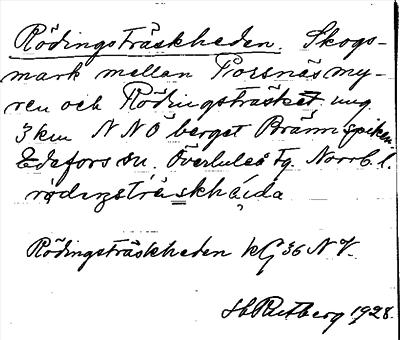 Rödingsträskheden. Skogs-
mark mellan Porsnäsmy-
ren och Rödingsträsket, ung.
3 km NNO berget Brännspiken
Edefors sn. Överluleå tg. Norrb. l.
Rödingsträskheden kG 36 NV.
H. Rutberg 1928.